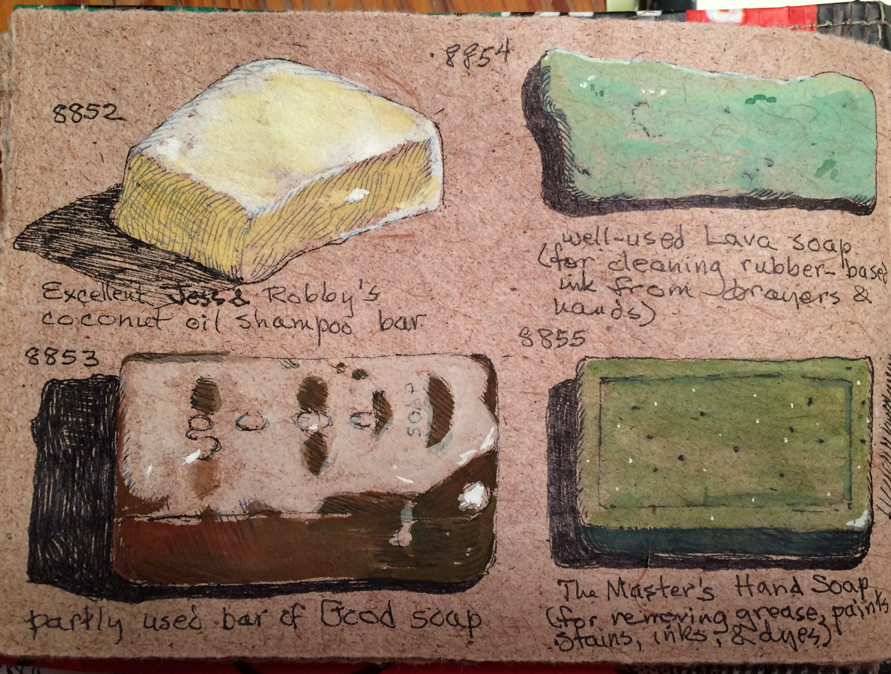 8852
Excellent Jess & Robby's
coconut oil shampoo bar
8854
well-used Lava soap
(for cleaning rubber-based
ink from brayers &
hands)
8853
good
soap
partly used bar of Good soap
8855
The Master's Hand Soap
(for removing grease, paints
stains, inks, & dyes)